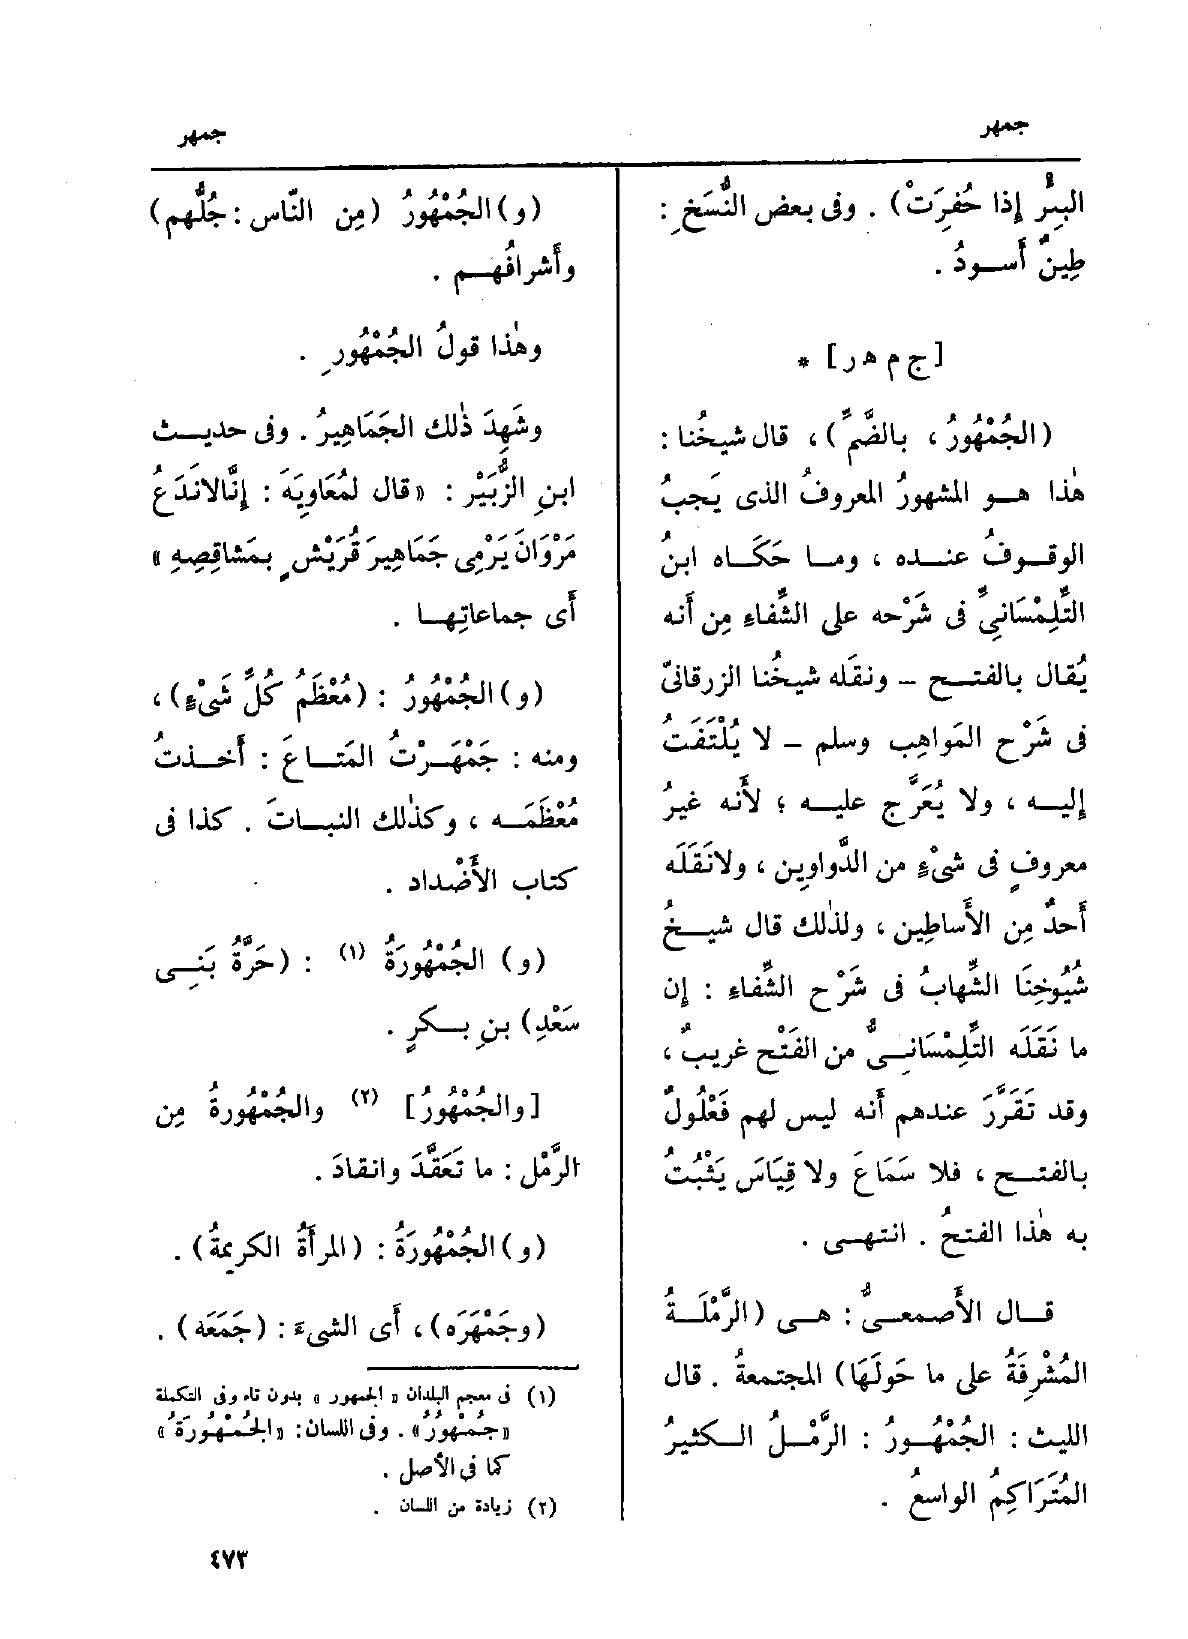 جمهر
جمهر
البِئْرُ إذا حُفِرَتْ) . وفى بعض النُّسَخِ :
طِينٌ أَسـودُ .
[ج م هـ ر] *
(الجُمْهُورُ ، بالضَّمِّ) ، قال شيخُنا :
هٰذا هـو المشهورُ المعروفُ الذى يَجبُ
الوقـوفُ عنـده ، ومـا حَكَـاه ابنُ
التِّلِمْسَانِىُّ فى شَرْحه على الشِّفاءِ مِن أَنه
يُقال بالفتـح – ونقَله شيخُنا الزرقانىّ
فى شَرْح المَواهِب وسلم – لا يُلْتَفَتُ
إليـه ، ولا يُعَرَّج عليـه ؛ لأَنه غيرُ
معروفٍ فى شىْءٍ من الدَّواوِين ، ولا نَقَلَه
أَحدٌ مِن الأَساطِين ، ولذٰلك قال شيـخُ
شُيُوخِنَا الشِّهابُ فى شَرْح الشِّفاءِ : إن
ما نَقَلَه التِّلِمْسَانـىُّ من الفَتْح غريبٌ ،
وقد تَقَرَّرَ عندهم أَنه ليس لهم فَعْلُولٌ
بالفتـح ، فلا سَمَاعَ ولا قِيَاسَ يَثْبُتُ
به هٰذا الفتحُ . انتهـى .
قـال الأَصمعـىُّ : هـى (الرَّمْلَـةُ
المُشْرِفَةُ على ما حَولَهَا) المجتمعةُ . قال
الليث : الجُمْهُـورُ : الرَّمْـلُ الـكثيرُ
المُتَرَاكِمُ الواسعُ .
(و) الجُمْهُورُ (مِن النَّاس : جُلُّهم)
وأَشرافُهـم .
وهٰذا قولُ الجُمْهُورِ .
وشَهِدَ ذٰلك الجَمَاهِيرُ . وفى حديـث
ابنِ الزُّبَيْر : «قال لمُعَاوِيَةَ : إنَّا لا نَدَعُ
مَرْوَانَ يَرْمِى جَمَاهِيرَ قُرَيْشٍ بمَشاقِصِهِ»
أَى جماعاتِهـا .
(و) الجُمْهُورُ : (مُعْظَمُ كُلِّ شَىْءٍ) ،
ومنه : جَمْهَـرْتُ المَتـاعَ : أَخـذتُ
مُعْظَمَـه ، وكذٰلك النبـاتَ . كذا فى
كتاب الأَضْداد .
(و) الجُمْهُورَةُ (١) : (حَرَّةُ بَنِـى
سَعْدِ) بنِ بـكرٍ .
[والجُمْهُورُ] (٢) والجُمْهُورةُ مِن
الرَّمْل : ما تَعَقَّدَ وانقادَ .
(و) الجُمْهُورَةُ : (المرأَةُ الكريمةُ) .
(وجَمْهَرَه) ، أَى الشىءَ : (جَمَعَه) .
(١) فى معجم البلدان «الجمهور» بدون تاء وفى التكملة
«جُمْهُورٌ» . وفى اللسان : «الجُمْهُورَةُ»
كما فى الأصل .
(٢) زيادة من اللسان .
٤٧٣